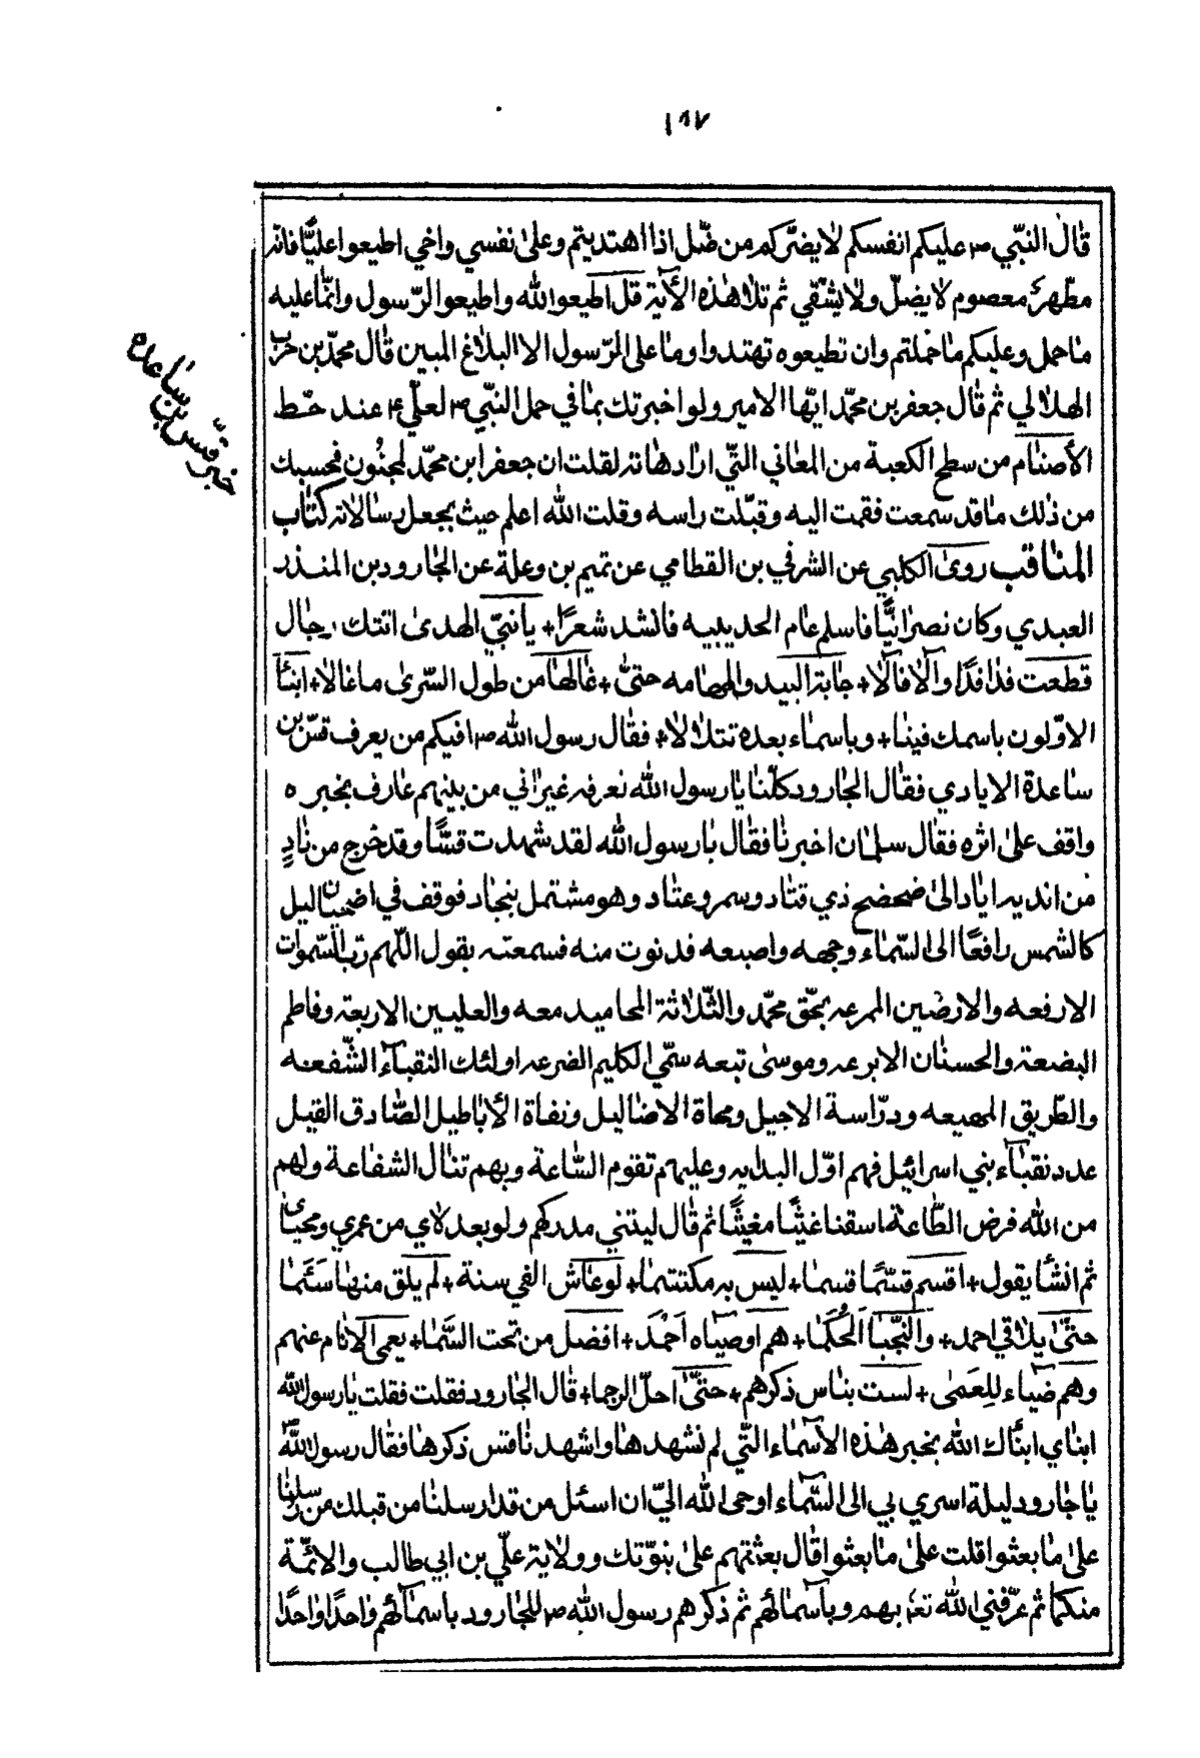 ١٨٧
قال النبّي ص عليكم انفسكم لا يضرّكم من ضّل اذا اهتديتم وعلىٰ نفسي واخي اطيعوا عليًّا فانّه
مطّهرٌ معصوم لا يضلّ ولا يشقي ثم تلا هذه الأية قل اطيعوا الله واطيعوا الرّسول وانمّا عليه
ما حمل وعليكم ما حمّلتم وان تطيعوه تهتدوا وما على الرّسول الا البلاغ المبين قال محمّد بن حرب
الهلالي ثم قال جعفر بن محمّد ايّها الامير ولو اخبرتك بما في حمل النبّي ص لعلّي ع عند حّط
الأصنام من سطح الكعبة من المعاني التّي ارادها به لقلت ان جعفر ابن محمّد لمجنُون فحسبك
من ذلك ما قد سمعت فقمت اليه وقبّلت راسه وقلت الله اعلم حيث يجعل رسالاته كتاب
المناقب روىٰ الكلبي عن الشرفي بن القطامي عن تميم بن وعلة عن الجارود بن المنذر
العبدي وكان نصرانيًّا فاسلم عام الحديبيه فانشد شعرًا + يا نبيّ الهدىٰ اتتك رجال
قطعت فدافدًا وآلا فآلا + جابة البيد والمهامه حتىّٰ + غالها من طول السّرىٰ ما غالا + ابنئا
الاوّلون باسمك فينا + وباسماء بعده تتلالا + فقال رسول الله ص افيكم من يعرف قسّ بن
ساعدة الايادي فقال الجارود كلّنا يا رسول الله نعرفه غير انّي من بينهم عارف بخبره
واقف علىٰ اثره فقال سلمان اخبرنا فقال يا رسول الله لقد شهدت قسًّا وقد خرج من نادٍ
من انديه اياد الىٰ ضحضح ذي قتاد وسمر وعتاد وهو مشتمل بنجاد فوقف في اضحيان ليل
كالشمس رافعًا الى السّماء وجهه واصبعه فدنوت منه فسمعته يقول اللّهم ربّ السّموات
الارفعه والارضين الممرعه بحقّ محمّد والثّلاثة المحاميد معه والعليين الاربعة وفاطم
البضعة والحسنان الابرعه وموسىٰ تبعه سمّي الكليم الضرعه اولئك النقبآء الشّفعه
والطّريق المهيعه ودرّاسة الاجيل ومحاة الاضاليل ونفاة الأباطيل الصّادق القيل
عدد نقباء بني اسرائيل فهم اوّل البدايه وعليهم تقوم السّاعة وبهم تنال الشفاعة ولهم
من الله فرض الطّاعة اسقنا غيثًا مغيثًا ثم قال ليتني مدركهم ولو بعد لاي من عمري ومحياي
ثم انشأ يقول + اقسم قسّمًا قسما + ليس به مكتتما + لو عاش الفي سنة + لم يلق منها سَئَما
حتىٰ يلاقي احمد + والنّجّبا الحُكما + هم اوصياه اَحْمَد + افضل من تحت السَّما + يعمي الانام عنهم
وهم ضياء للِعَمىٰ + لست بناس ذكرهم + حتىّٰ احلّ الرجما + قال الجارود فقلت فقلت يا رسول الله
ابناي ابنّاك الله بخبر هذه الاسماء التّي لم نشهدها واشهدنا قس ذكرها فقال رسول الله ص
يا جارود ليلة اسري بي الى السّماء اوحى الله اليّ ان اسئل من قد ارسلنا من قبلك من رسلنا
علىٰ ما بعثوا قلت علىٰ ما بعثوا قال بعثتهم علىٰ نبوّتك وولاية علّي بن ابي طالب والائمّة
منكما ثم عرّفني الله تعٰ بهم وباسمائهم ثم ذكرهم رسول الله ص للجارود باسمائهم واحدًا واحدًا
خبر قسّ بن ساعده